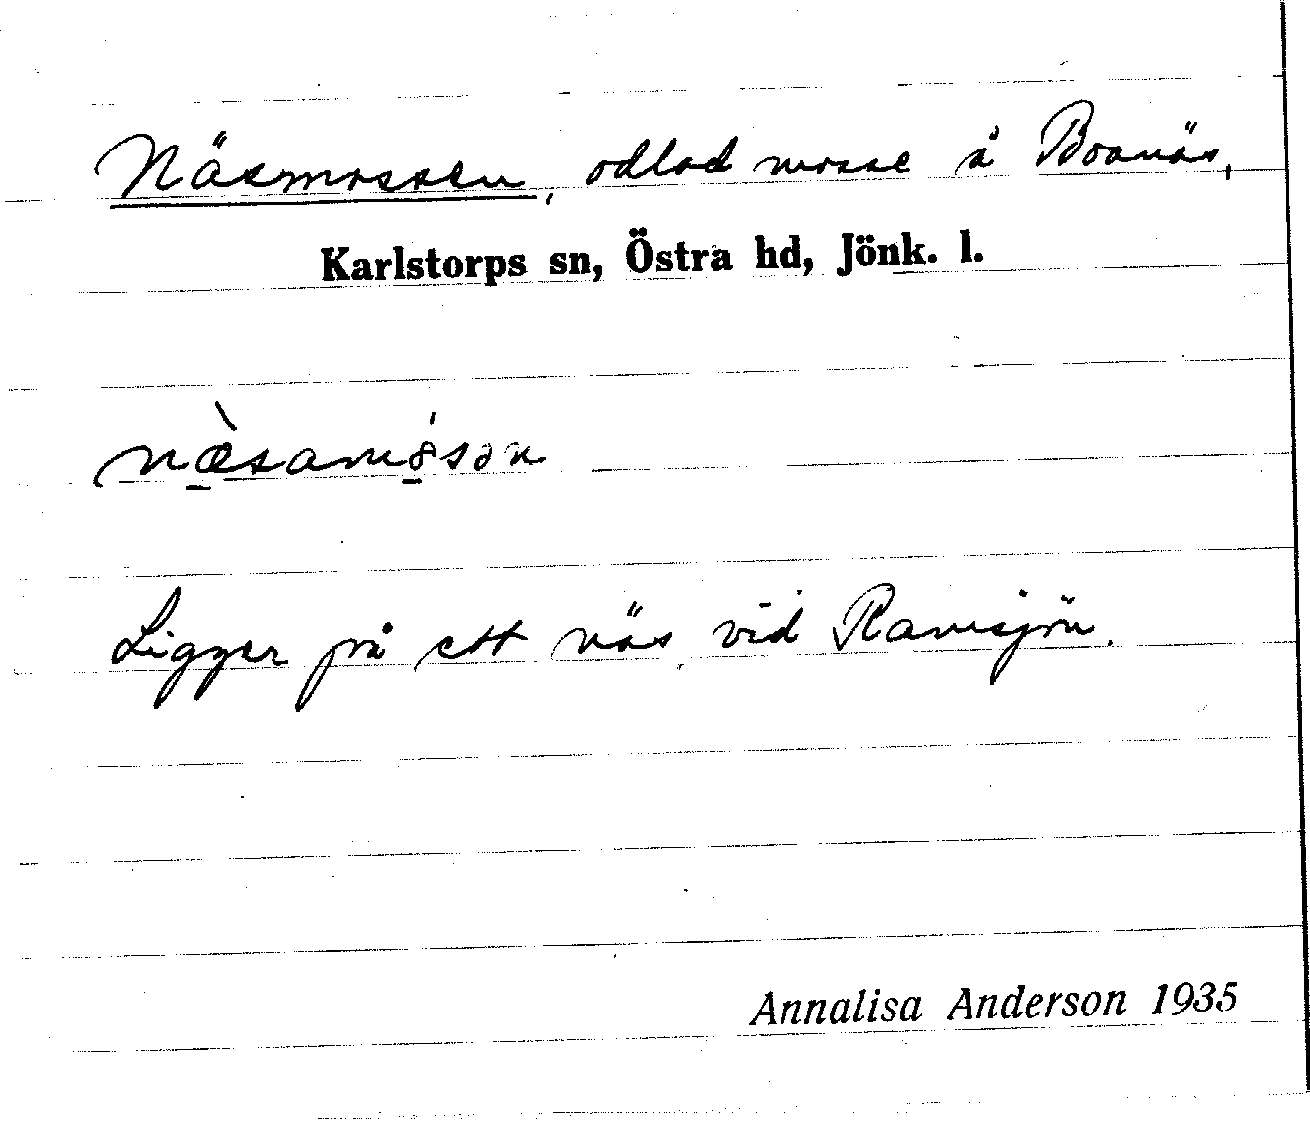 Näsmossen, odlad mosse å Boanäs,
Karlstorps sn, Östra hd, Jönk. l.
Ligger på ett näs vid Ramsjön.
Annalisa Anderson 1935